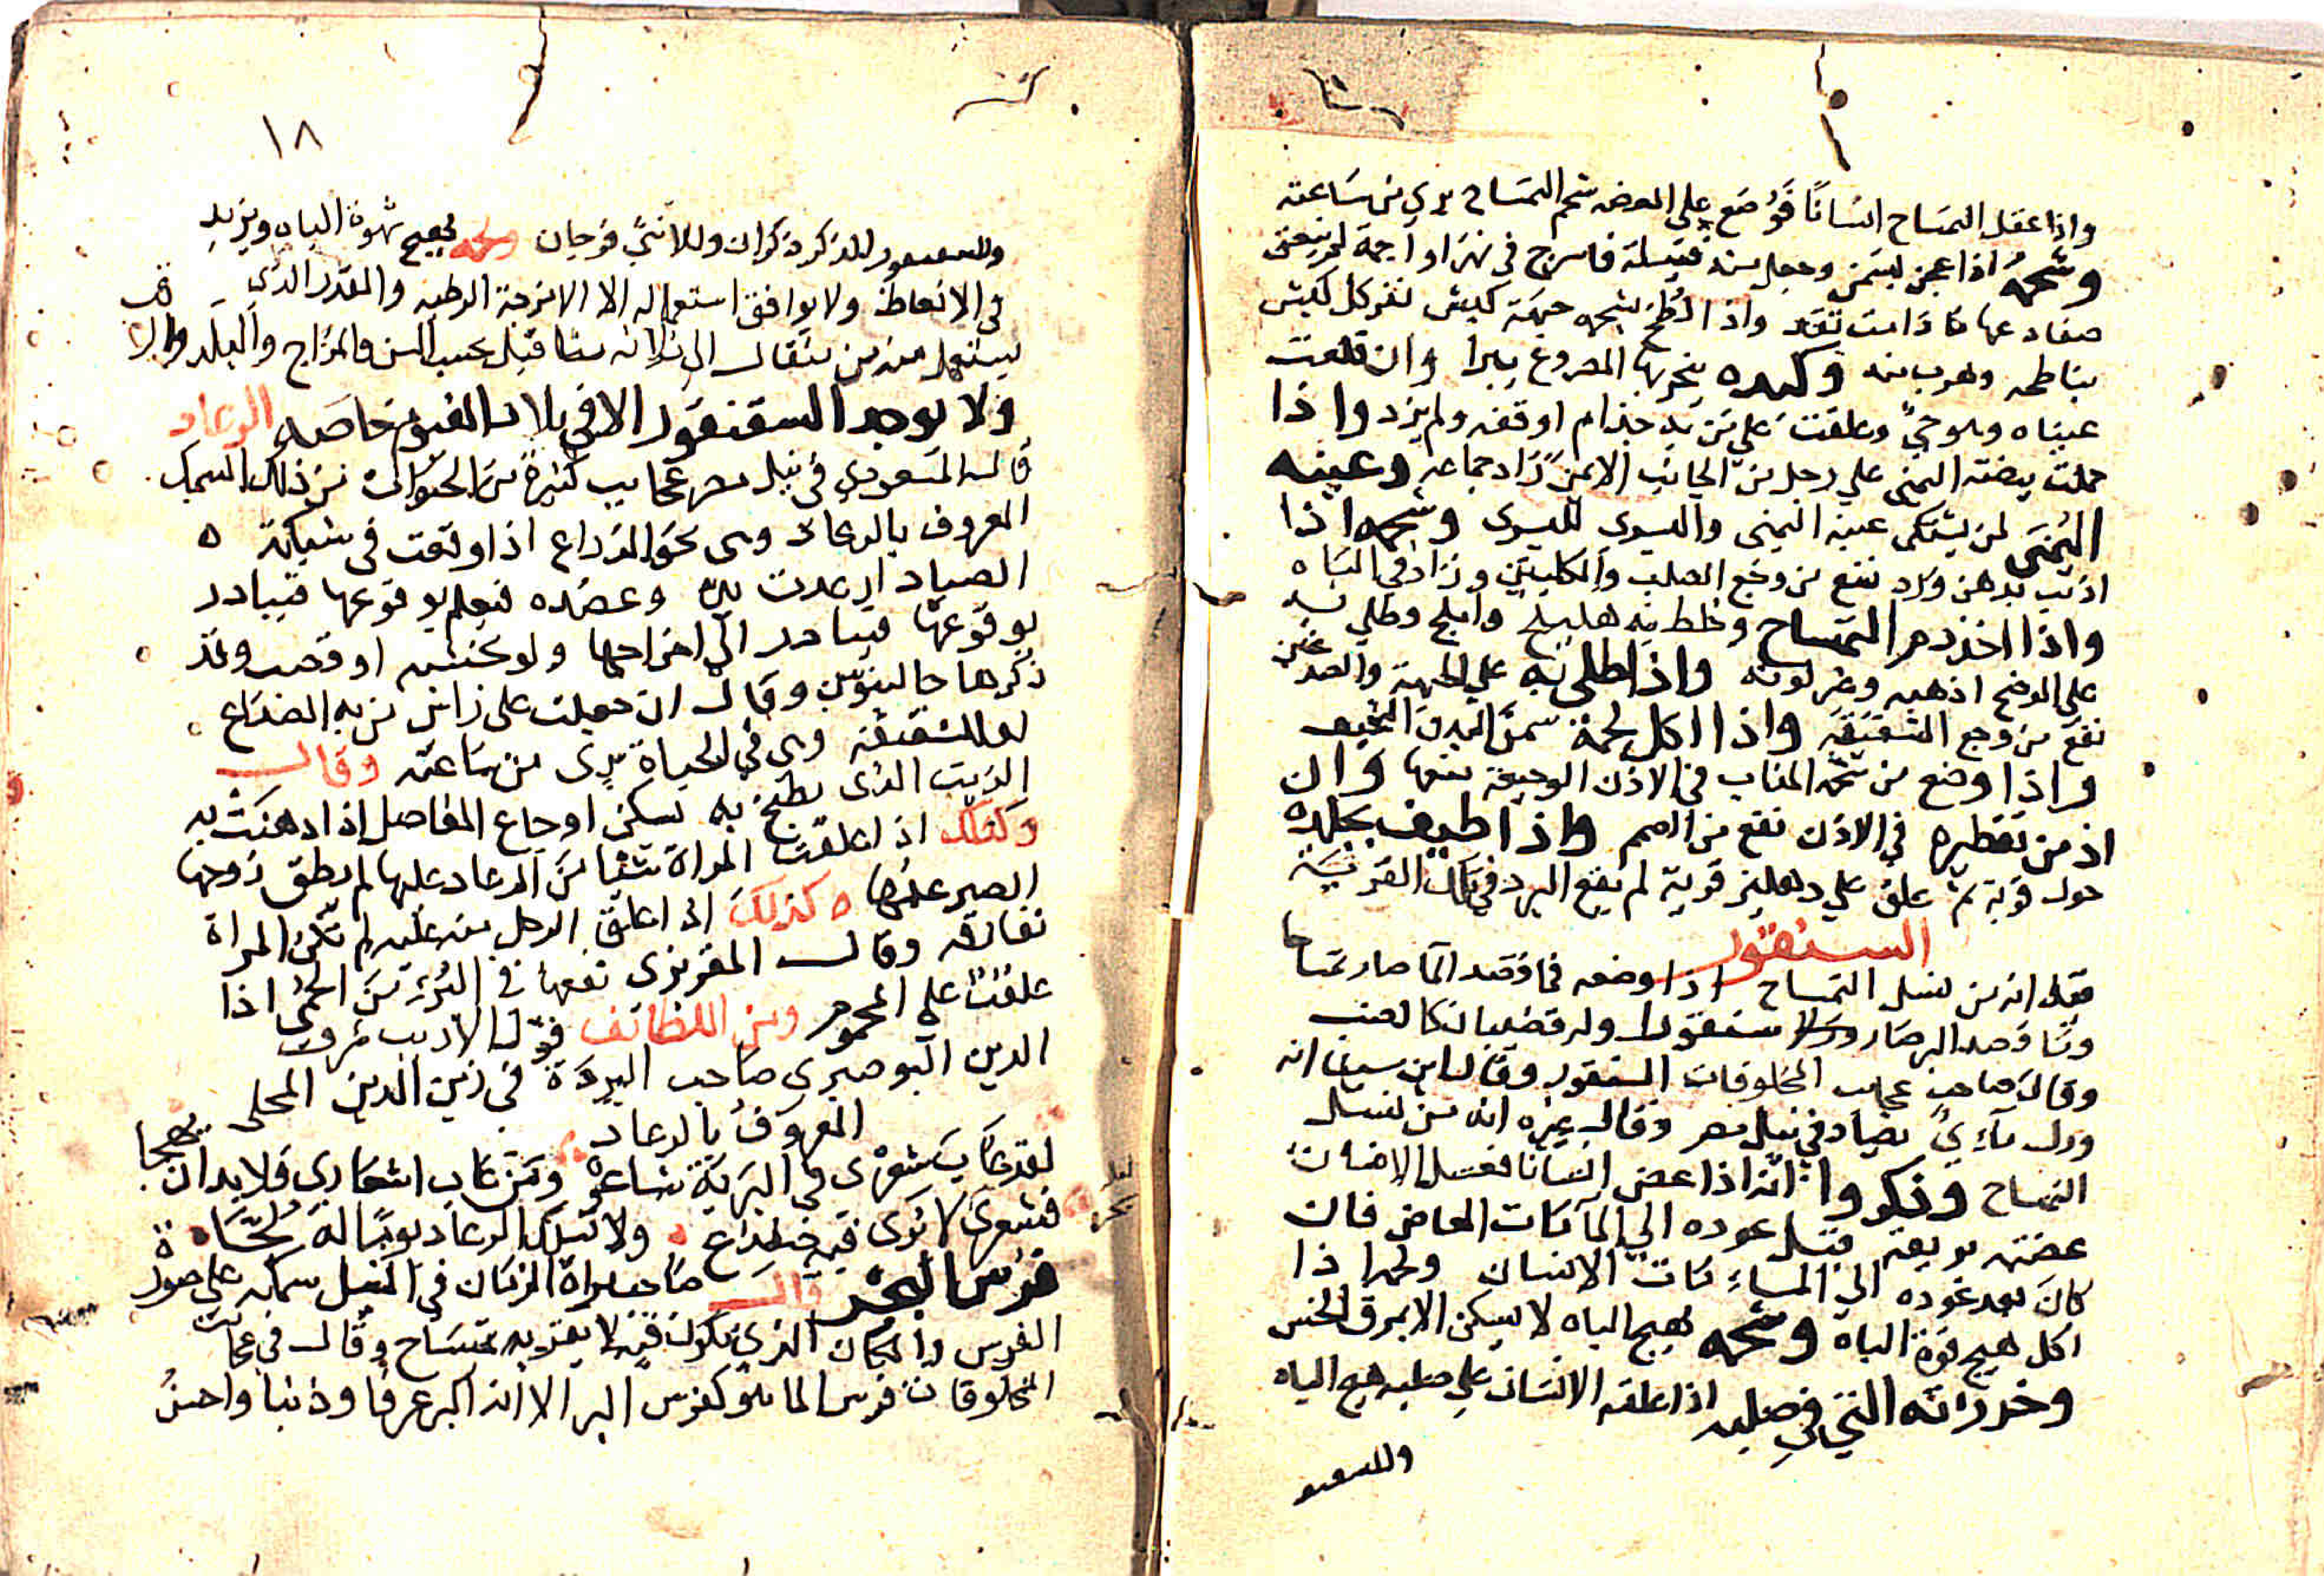 واذا عقل التمساح انسانًا فوُضع علي العضه شحم التمساح بري من ساعته
وشحمه اذا عجن بسمن وجعل منه فتيلة فاسرج في نهر او اجمة لم ينعق
ضفادعها ما دامت تقد واذا لُطخ بشحمه جبهة كبش نفر كل كبش
يناطحه وهرب منه وكبده يبخر بها المصروع يبرا وان قلعت
عيناه وهو حيّ وعلقت علي من به جذام اوقفه ولم يزد واذا
حملت بيضته اليمني علي رجل من الجانب الايمن زاد جماعه وعينه
اليُمنَى لمن يشتكي عينه اليمنى واليسرى لليسرى وشحمه اذا
اذيب بدهن ورد نفع من وجع الصلب والكليتين وزاد في الباه
واذا اخذ دم التمساح وخلط به هليلج واملج وطلي به
علي الوضح اذهبه وغير لونه واذا طلي به علي الجبهة والصدغين
نفع من وجع الشقيقه واذا اكل لحمه سمن البدن النحيف
واذا وضع من شحمه المذاب في الاذن الوجيعة نفعها وان
ادمن تقطيره في الاذن نفع من الصمم واذا طيف بجلده
حول قرية ثم علق علي دهليز قرية لم يقع البرد في تلك القرية
السنقور
فقيل انه من نسل التمساح اذا وضعه فما قصد الما صار تمساحا
وما قصد البر صار سقنقورا وله قضيبان كالضب
وقال صاحب عجايب المخلوقات السقنقور وقال ابن سينا انه
ورل مآءيّ يصاد في نيل مصر وقال غيره انه من نسل
التمساح وذكروا انه اذا عض انسانا فغسل الانسان
عضته بريقه قبل عوده الي المآ مات العاض فان
كان بعد عوده الي المساء مات الانسان ولحمه اذا
اكل هيج قوة الباه وشحمه يهيج الباه لا يسكن الا بمرق الخس
وخرزاته التي في صلبه اذا علقه الانسان علي صلبه هيج الباه
وللسقنقو
١٨
وللسقنقور للذكر ذكران وللانثي فرجان ولحمه يهيج شهوة الباه ويزيد
في الانعاظ ولا يوافق استعماله الا الامزجة الرطبه والمقدر الذي
يستعمل منه من مثقال الي ثلاثه مثاقيل بحسب السن والمزاج والبلد والوقت
ولا يوجد السقنقور الا في بلاد الفيوم خاصه الرعاد
قال المسعودي في نيل مصر عجايب كثيرة من الحيوان من ذلك السمك
المعروف بالرعاد وهى نحو الذراع اذا وقعت في شبكة
الصياد ارعدت يده وعضده فيعلم بوقوعها فيبادر
بوقوعها فيبادر الي اخراجها ولو بخشبه او قصب وقد
ذكرها جالينوس وقال ان جعلت على راس من به الصداع
او الشقيقه وهى في الحياة بري من ساعته وقال
الزيت الذى يطبخ به يسكن اوجاع المفاصل اذا دهنت به
وكذلك اذا علقت المراة شيا من الرعاد عليها لم يطق زوجها
الصبر عنها وكذلك اذا علق الرجل منه عليه لم تكن المراة
تفارقه وقال المقريزى نفعها في البُرء من الحمى اذا
علقت على المحموم ومن اللطائف قول الاديب شرف
الدين البوصيرى صاحب البردة في زين الدين المحلى
المعروف بالرعاد
لقد عاب شعرى في البرية شاعر ومن عاب اشعاري فلا بد ان يهجا
فشعرى بحر لا نرى فيه ضفدع ولا تسلك الرعاد يومًا له لُجّا
فرس البحر قال صاحب مراة الزمان في النيل سمكه علي صورة
الفرس والمكان الذي يكون فيه لا يقربه تمساح وقال في عجائب
المخلوقات فرس الما هو كفرس البر الا انه اكبر عرفا وذنبا واحسن